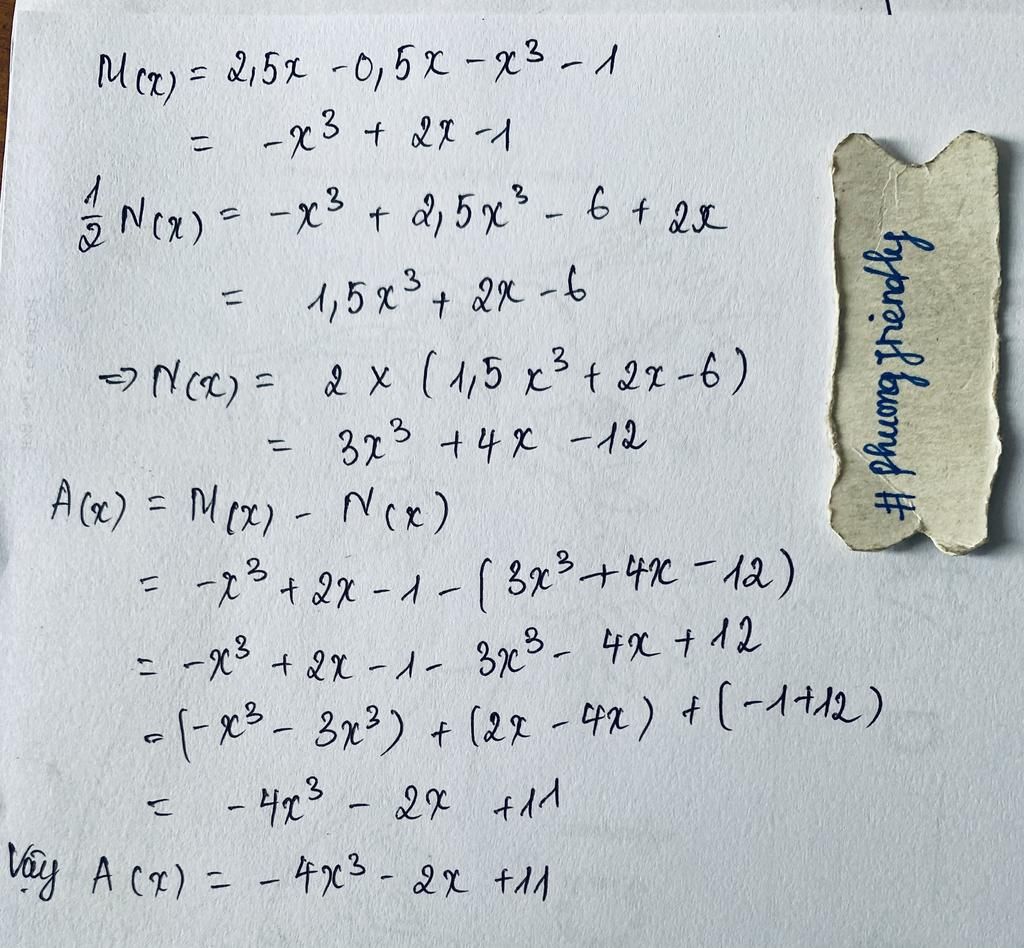 M(x) = 2,5x - 0,5x - x³ - 1
= -x³ + 2x - 1
½ N(x) = -x³ + 2,5x³ - 6 + 2x
= 1,5x³ + 2x - 6
=> N(x) = 2 × (1,5x³ + 2x - 6)
= 3x³ + 4x - 12
A(x) = M(x) - N(x)
= -x³ + 2x - 1 - (3x³ + 4x - 12)
= -x³ + 2x - 1 - 3x³ - 4x + 12
= (-x³ - 3x³) + (2x - 4x) + (-1 + 12)
= -4x³ - 2x + 11
Vậy A(x) = -4x³ - 2x + 11
# phuongfriendly